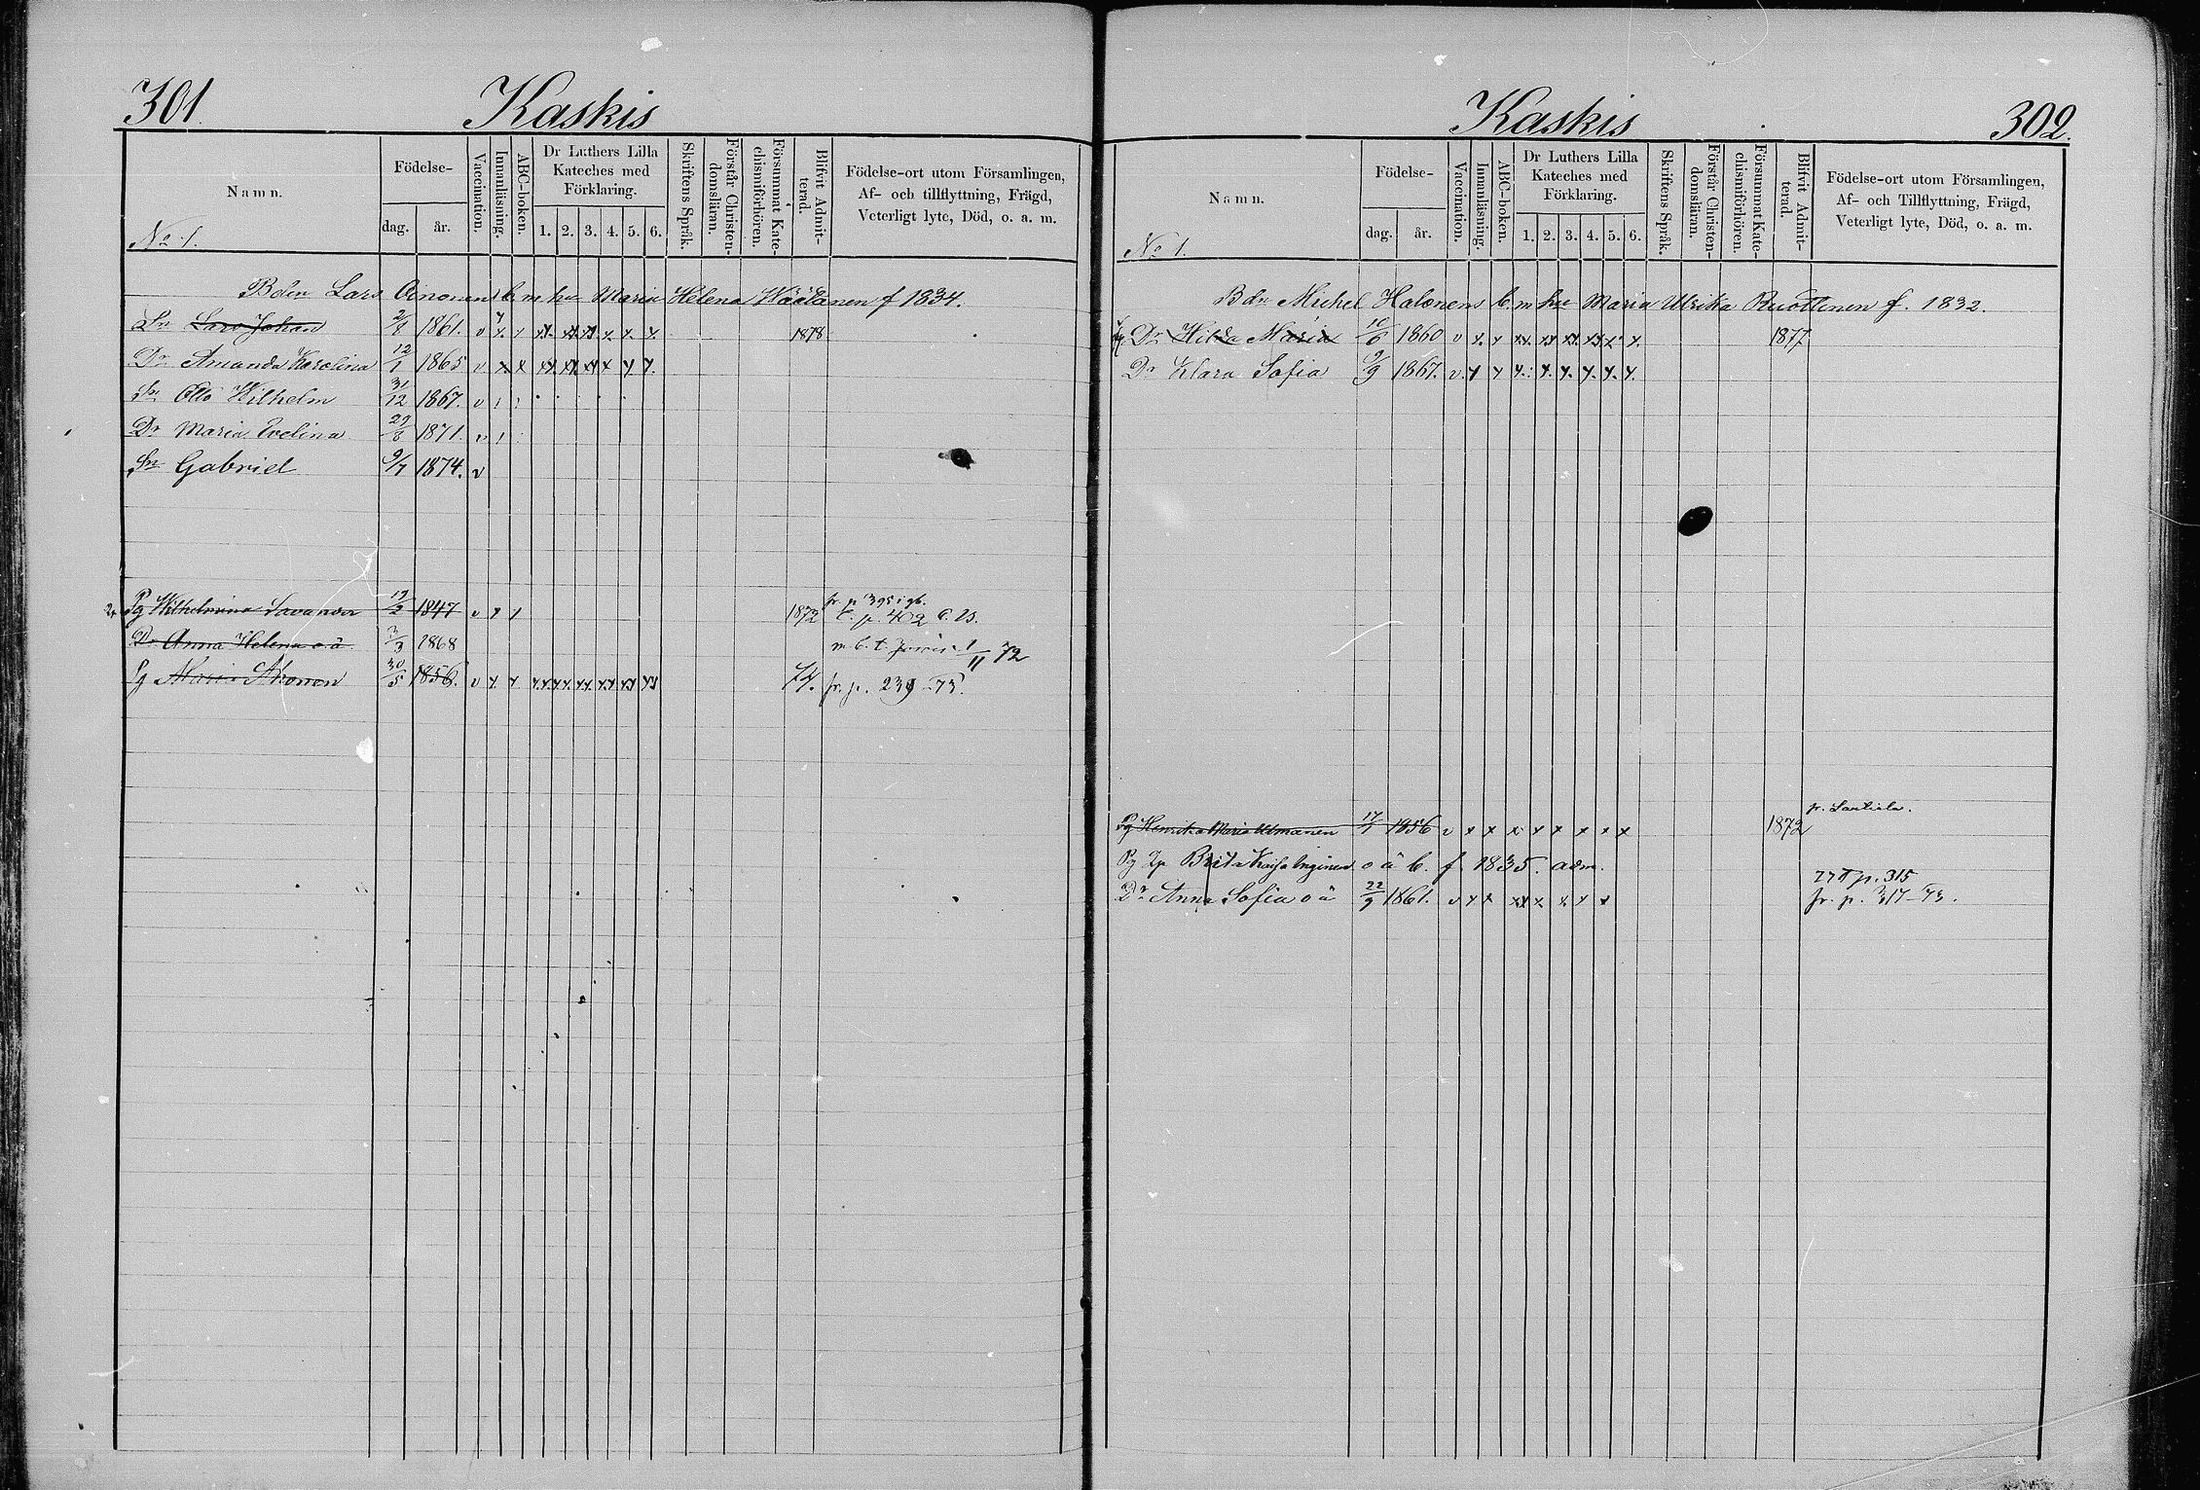 301.
Kaskis
Namn.
No 1.
Födelse-
dag.
år.
Vaccination.
Innanläsning.
ABC-boken.
Dr Luthers Lilla
Kateches med
Förklaring.
1. 2. 3. 4. 5. 6.
Skriftens Språk.
Förstår Christen-
domsläran.
Försummat Kate-
chismiförhören.
Blifvit Admit-
terad.
Födelse-ort utom Församlingen,
Af- och tillflyttning, Frägd,
Veterligt lyte, Död, o. a. m.
Bdn Lars Oinonens b. m. hu Maria Helena f 1834.
Sn Lars Johan 2/8 1861. v x x x x x x x x 1878
Dr Amanda Karolina 12/1 1865 v x x x x x x x x
Sn Otto Wilhelm 31/12 1867. v
Dr Maria Evelina 29/8 1871. v
Sn Gabriel 9/7 1874. v
fr. p 395 i gb.
Pg Wilhelmina Savander 19/2 1847 v 1872 t. p. 402
Dr Anna Helena o. ä 3/3 1868 m. b. t. 1/11 72
Pg Maria 30/5 1856. v x x x x x x x x 74. fr. p. 239-73.
Kaskis
302.
Namn.
No 1.
Födelse-
dag.
år.
Vaccination.
Innanläsning.
ABC-boken.
Dr Luthers Lilla
Kateches med
Förklaring.
1. 2. 3. 4. 5. 6.
Skriftens Språk.
Förstår Christen-
domsläran.
Försummat Kate-
chismiförhören.
Blifvit Admit-
terad.
Födelse-ort utom Församlingen,
Af- och Tillflyttning, Frägd,
Veterligt lyte, Död, o. a. m.
Bdn Michel Halonens b. m hu Maria Ulrika Ruottinen f. 1832.
Dr Hilda Maria 10/6 1860 v x x x x x x x x 1877
Dr Klara Sofia 9/9 1867. v x x x x x x x x
fr.
Pg Henrika Maria 17/1 1856 v x x x x x x x x 1872
Pg Brita Kaisa Inginen o ä b. f 1835. adm.
p. 315
Dr Anna Sofia o ä 22/9 1861. v x x x x x x x fr. p. 317-73.